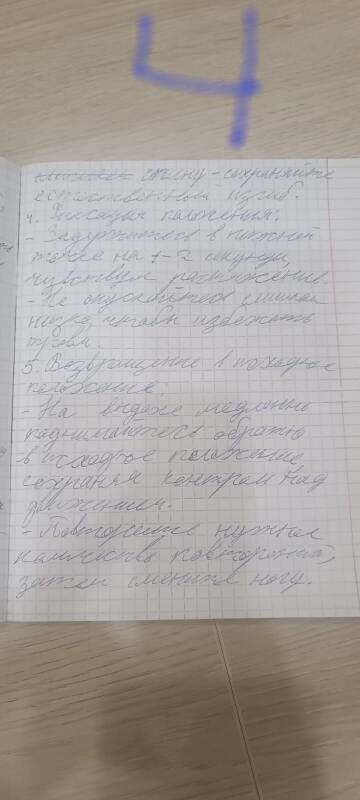 4
спину - сохраняйте
естественный изгиб.
4. Фиксация положения:
- Задержитесь в нижней
точке на 1-2 секунды,
чувствуя растяжение
- Не опускайтесь слишком
низко, чтобы избежать
травм.
5. Возвращение в исходное
положение
- На выдохе медленно
поднимайтесь обратно
в исходное положение,
сохраняя контроль над
движением.
- Повторите нужное
количество повторений,
затем смените ногу.